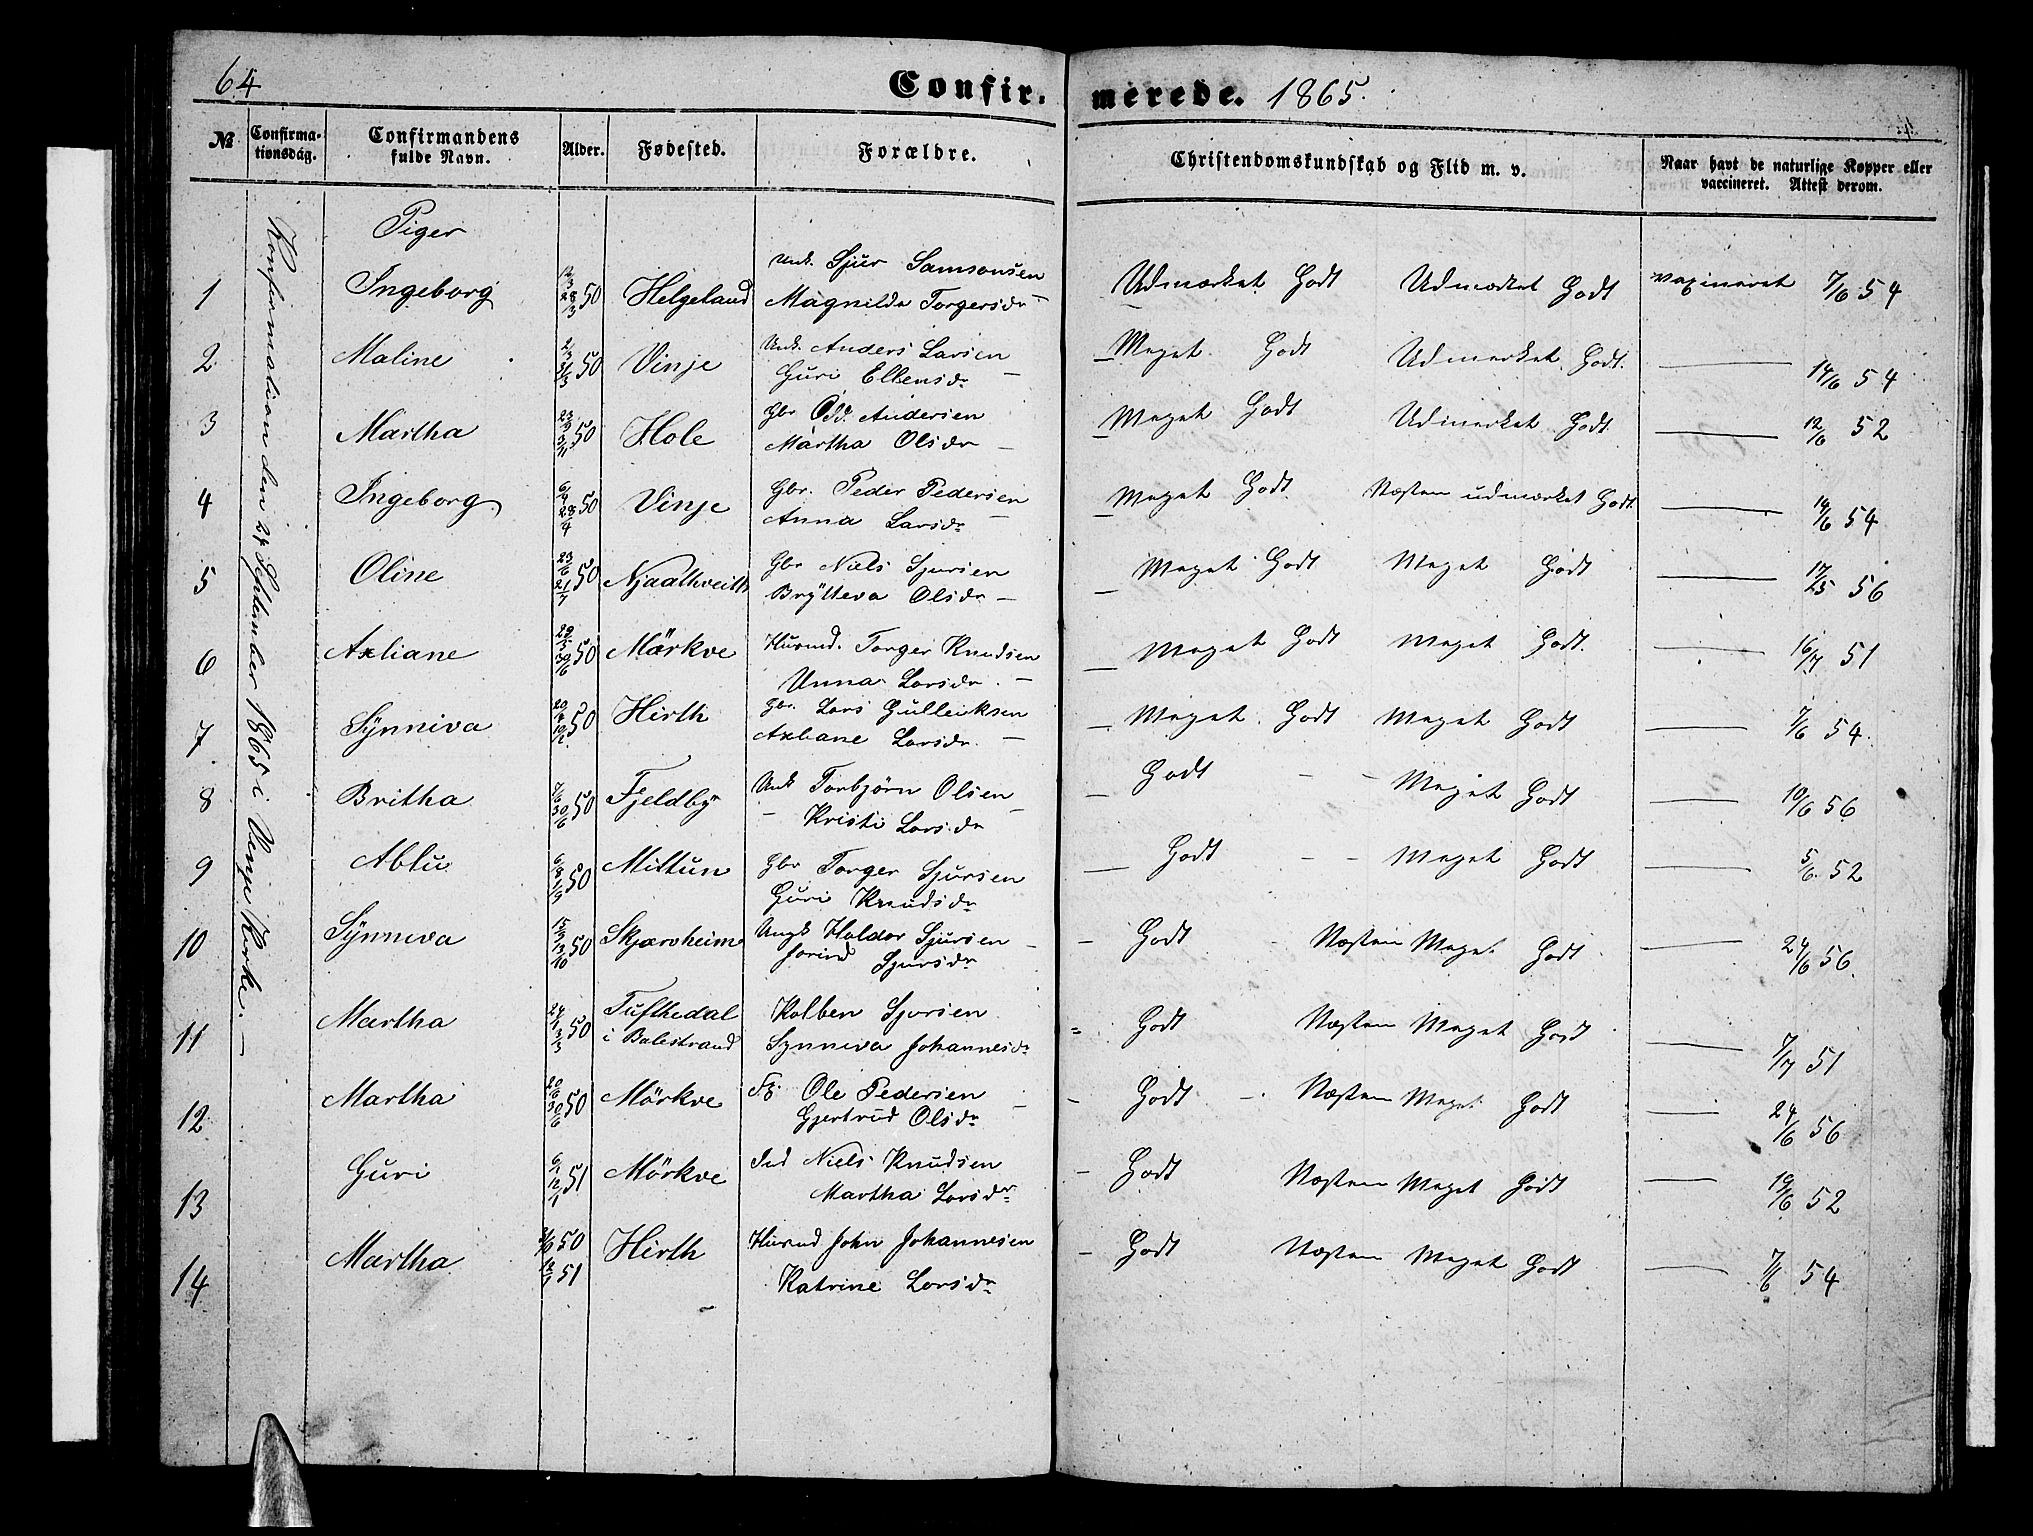 64 Confir. merede. 1865.
№ Confirma-tionsdag. Confirmandens fulde Navn. Alder. Fødested. Forældre. Christendomskundskab og Flid m. v. Naar havt de naturlige Kopper eller vaccineret. Attest derom.
Konformationen den 24 September 1865 i Vinje Kirke. —
Piger
1 Ingeborg 12/3 28/3 50 Helgeland Unk. Sjur Samsonsen
Magnilda Torgersdr — Udmærket Godt Udmærket Godt vaxineret 7/6 54
2 Maline 2/3 31/3 50 Vinje Unk. Anders Larsen
Guri Ellensdr — Meget Godt Udmærket Godt. — 14/6 54
3 Martha 50 Hole Gbr Odd Andersen
Martha Olsdr — Meget Godt Udmærket Godt. — 12/6 52
4 Ingeborg 6/4 28/4 50 Vinje Gbr. Peder Pedersen
Anna Larsdr — Meget Godt Næsten udmærket Godt. — 14/6 54
5 Oline 23/6 21/7 50 Njaathveith Gbr Niels Sjursen
Brytteva Olsdr — Meget Godt Meget Godt — 56
6 Axliane 50 Mørkve Husmd. Torger Knudsen
Unna Larsdr. — Meget Godt Meget Godt. — 16/7 51
7 Synniva 50 Hirth Gbr. Lars Gulleiksen
Axliane Larsdr. — Meget Godt Meget Godt — 7/6 54.
8 Britha 7/6 30/6 50 Fjeldby Unk Torbjørn Olsen —
Kristi Larsdr — Godt — — Meget Godt — 10/6 56
9 Ablu 6/8 1/9 50 Mittun Gbr Torger Sjursen
Guri Knudsdr — Godt — — Meget Godt — 5/6. 52
10 Synneva 15/9 13/10 50 Skjærvheim Ungk Haldor Sjursen —
Jorind Sjursdr — Godt — Næsten Meget Godt — 24/6 56.
11 Martha 24/1 3/3 50 Tufthedal
i Balestrand Kolben Sjursen
Synneva Johannesdr = Godt Næsten Meget Godt — 7/7 51
12 Martha 20/6 30/6 50 Mørkve Ole Pedersen
Gjertrud Olsdr — Godt — Næsten Meget Godt — 24/6 56
13 Guri 6/1 12/1 51 Mörkve Ind Niels Knudsen
Martha Larsdr — Godt Næsten Meget Godt — 19/6 52
14 Martha 50 51 Hirth Husmd John Johannesen
Katrine Larsdr — Godt Næsten Meget Godt — 7/6 54